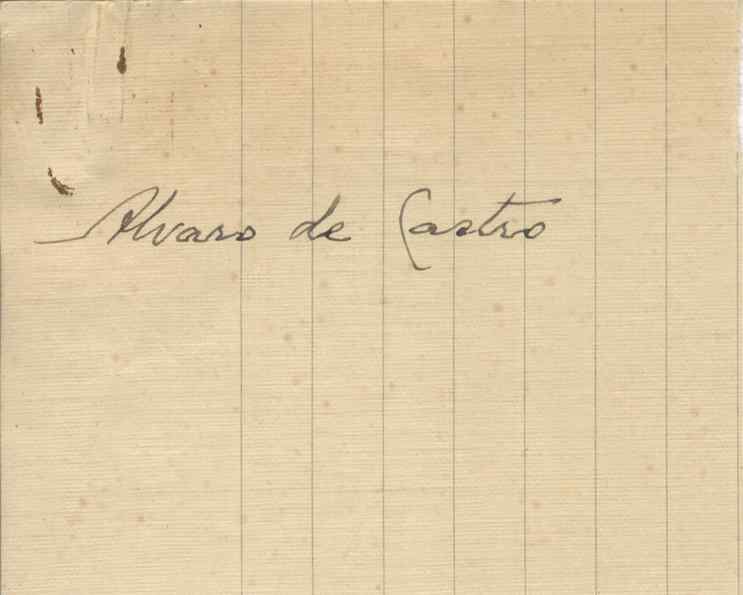 Alvaro de Castro